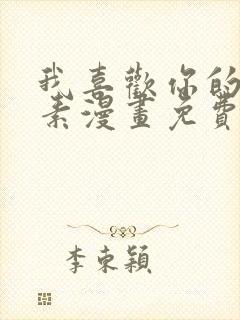 我喜歡你的
素漫畫免費
李東穎